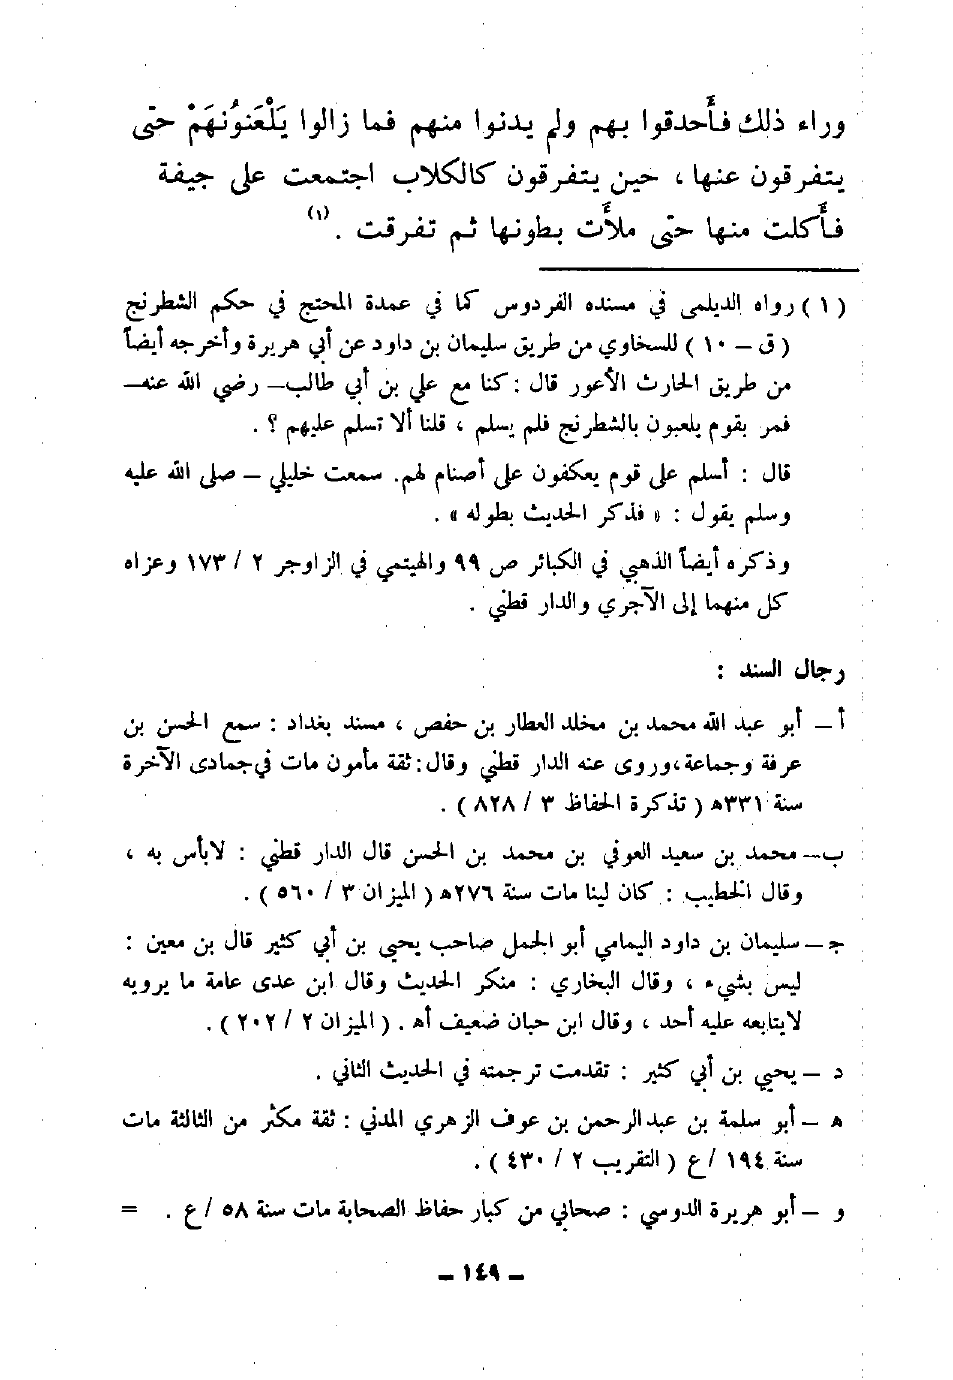 وراء ذلك فأحدقوا بهم ولم يدنوا منهم فما زالوا يَلْعَنُونَهَمْ حتى
يتفرقون عنها ، حين يتفرقون كالكلاب اجتمعت على جيفة
فأكلت منها حتى ملأت بطونها ثم تفرقت . (١)
( ١ ) رواه الديلمى في مسنده الفردوس كما في عمدة المحتج في حكم الشطرنج
( ق – ١٠ ) للسخاوي من طريق سليمان بن داود عن أبي هريرة وأخرجه أيضاً
من طريق الحارث الأعور قال : كنا مع علي بن أبي طالب – رضي الله عنه –
فمر بقوم يلعبون بالشطرنج فلم يسلم ، قلنا ألا تسلم عليهم ؟ .
قال : أسلم على قوم يعكفون على أصنام لهم. سمعت خليلي – صلى الله عليه
وسلم يقول : « فذكر الحديث بطوله » .
وذكره أيضاً الذهبي في الكبائر ص ٩٩ والهيتمي في الزاوجر ٢ / ١٧٣ وعزاه
كل منهما إلى الآجري والدار قطني .
رجال السند :
أ – أبو عبد الله محمد بن مخلد العطار بن حفص ، مسند بغداد : سمع الحسن بن
عرفة وجماعة،وروى عنه الدار قطني وقال: ثقة مأمون مات في جمادى الآخرة
سنة ٣٣١ه ( تذكرة الحفاظ ٣ / ٨٢٨ ) .
ب– محمد بن سعيد العوفي بن محمد بن الحسن قال الدار قطني : لابأس به ،
وقال الخطيب : كان لينا مات سنة ٢٧٦ه ( الميزان ٣ / ٥٦٠ ) .
ج – سليمان بن داود اليمامي أبو الجمل صاحب يحيى بن أبي كثير قال بن معين :
ليس بشيء ، وقال البخاري : منكر الحديث وقال ابن عدى عامة ما يرويه
لايتابعه عليه أحد ، وقال ابن حبان ضعيف أه . ( الميزان ٢ / ٢٠٢ ) .
د – يحيي بن أبي كثير : تقدمت ترجمته في الحديث الثاني .
ه – أبو سلمة بن عبدالرحمن بن عوف الزهري المدني : ثقة مكثر من الثالثة مات
سنة ١٩٤ /ع ( التقريب ٢ / ٤٣٠ ) .
و – أبو هريرة الدوسي : صحابي من كبار حفاظ الصحابة مات سنة ٥٨ /ع . =
– ١٤٩ –